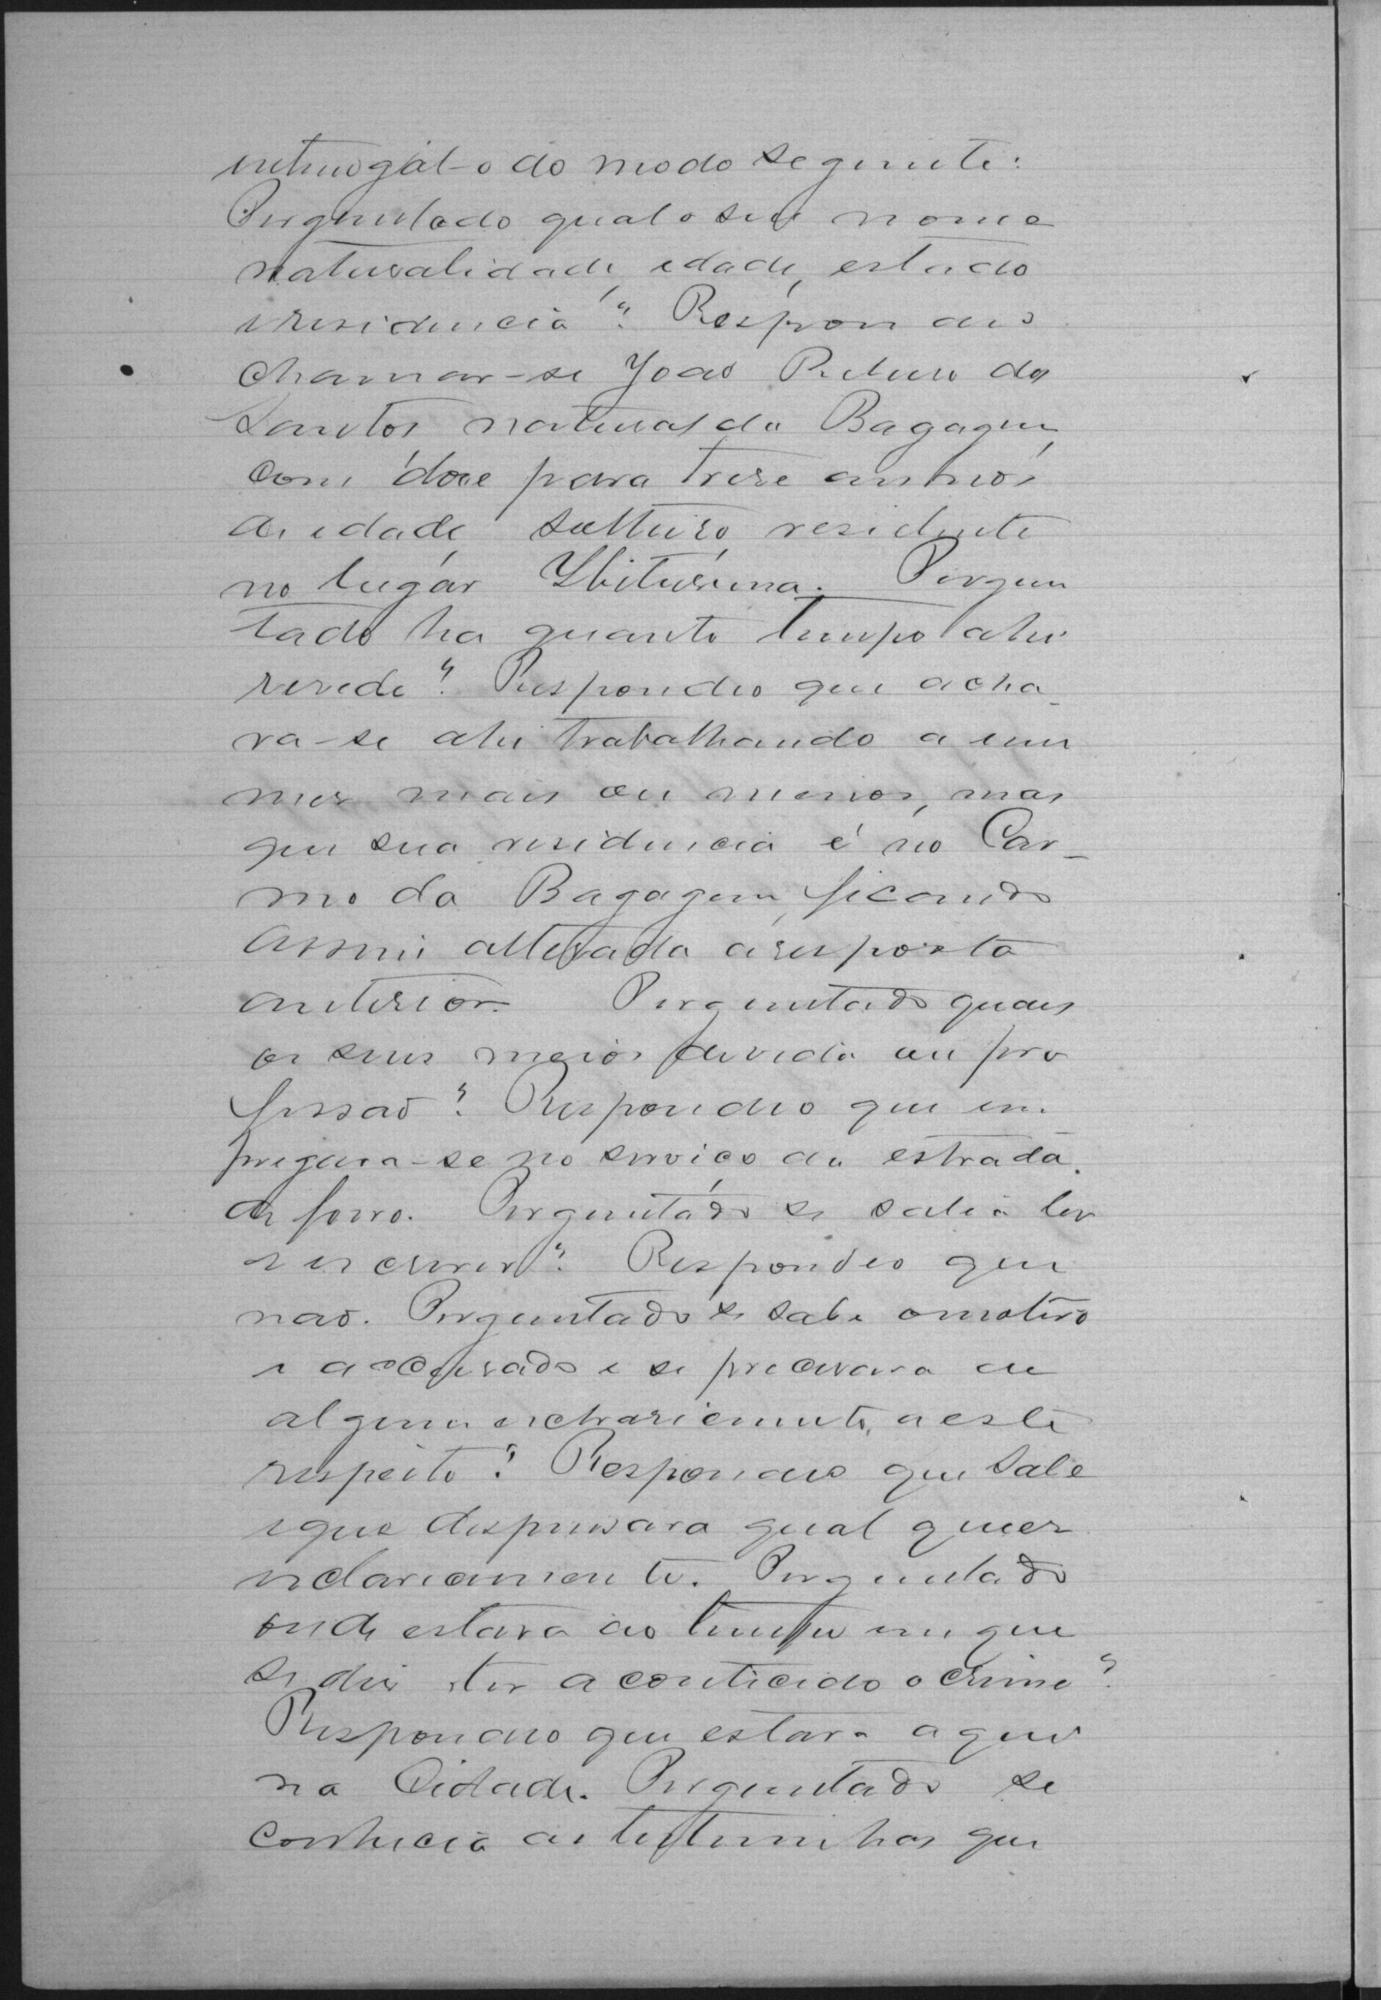 interrogal-o do modo seguinte:
Perguntado qual o seu nome
naturalidade, edade, estado
e residencia? Respondeo
chamar-se João Ribeiro dos
Santos natural da Bagagem,
com doze para treze annos
de edade, solteiro, residente
no lugar Ybituruna. Pergun
tado ha quanto tempo ahi
reside? Respondeo que acha
va-se ahi trabalhando a um
mez mais ou menos, mas
que sua residencia é no Car-
mo da Bagagem, ficando
assim alterada a resposta
anterior. Perguntado quaes
os seus meios de vida ou pro
fissão? Respondeo que em
pregava-se no serviço da estrada
de ferro. Perguntado se sabia ler
e escrever? Respondeo que
não. Perguntado se sabe o motivo
e accusado e se precisava de
algum esclarecimento, a este
respeito? Respondeo que sabe
e que dispensava qual quer
esclarecimento. Perguntado
onde estava ao tempo em que
se diz ter acontecido o crime?
Respondeo que estava aqui
na Cidade. Perguntado se
conhecia as testeminhas que